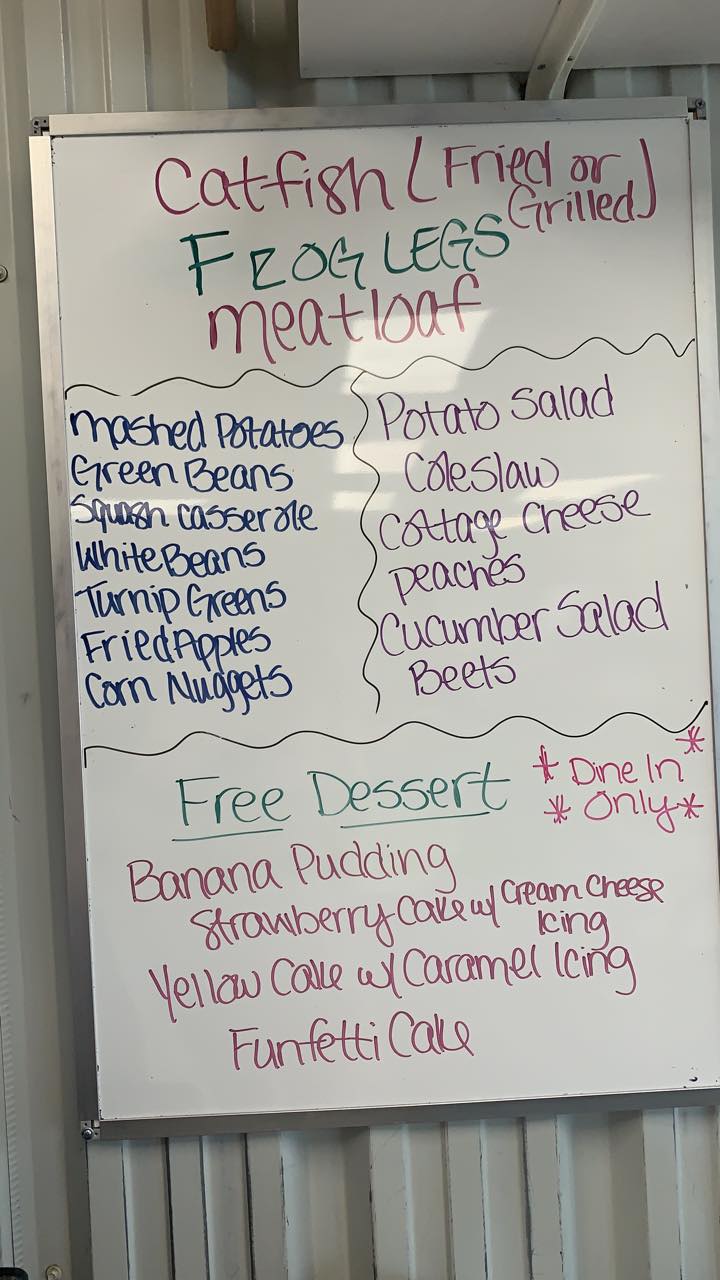 Catfish (Fried or Grilled)
FROG LEGS
meatloaf
mashed Potatoes
Green Beans
Squash casserole
White Beans
Turnip Greens
Fried Apples
Corn Nuggets
Potato Salad
Coleslaw
Cottage Cheese
peaches
Cucumber Salad
Beets
Free Dessert
* Dine In *
* Only *
Banana Pudding
Strawberry Cake w/ Cream Cheese Icing
Yellow Cake w/ Caramel Icing
Funfetti Cake